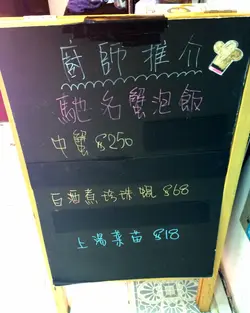 廚師推介
馳名蟹泡飯
中蟹 $250
白酒煮珍珠蜆 $68
上湯菜苗 $18